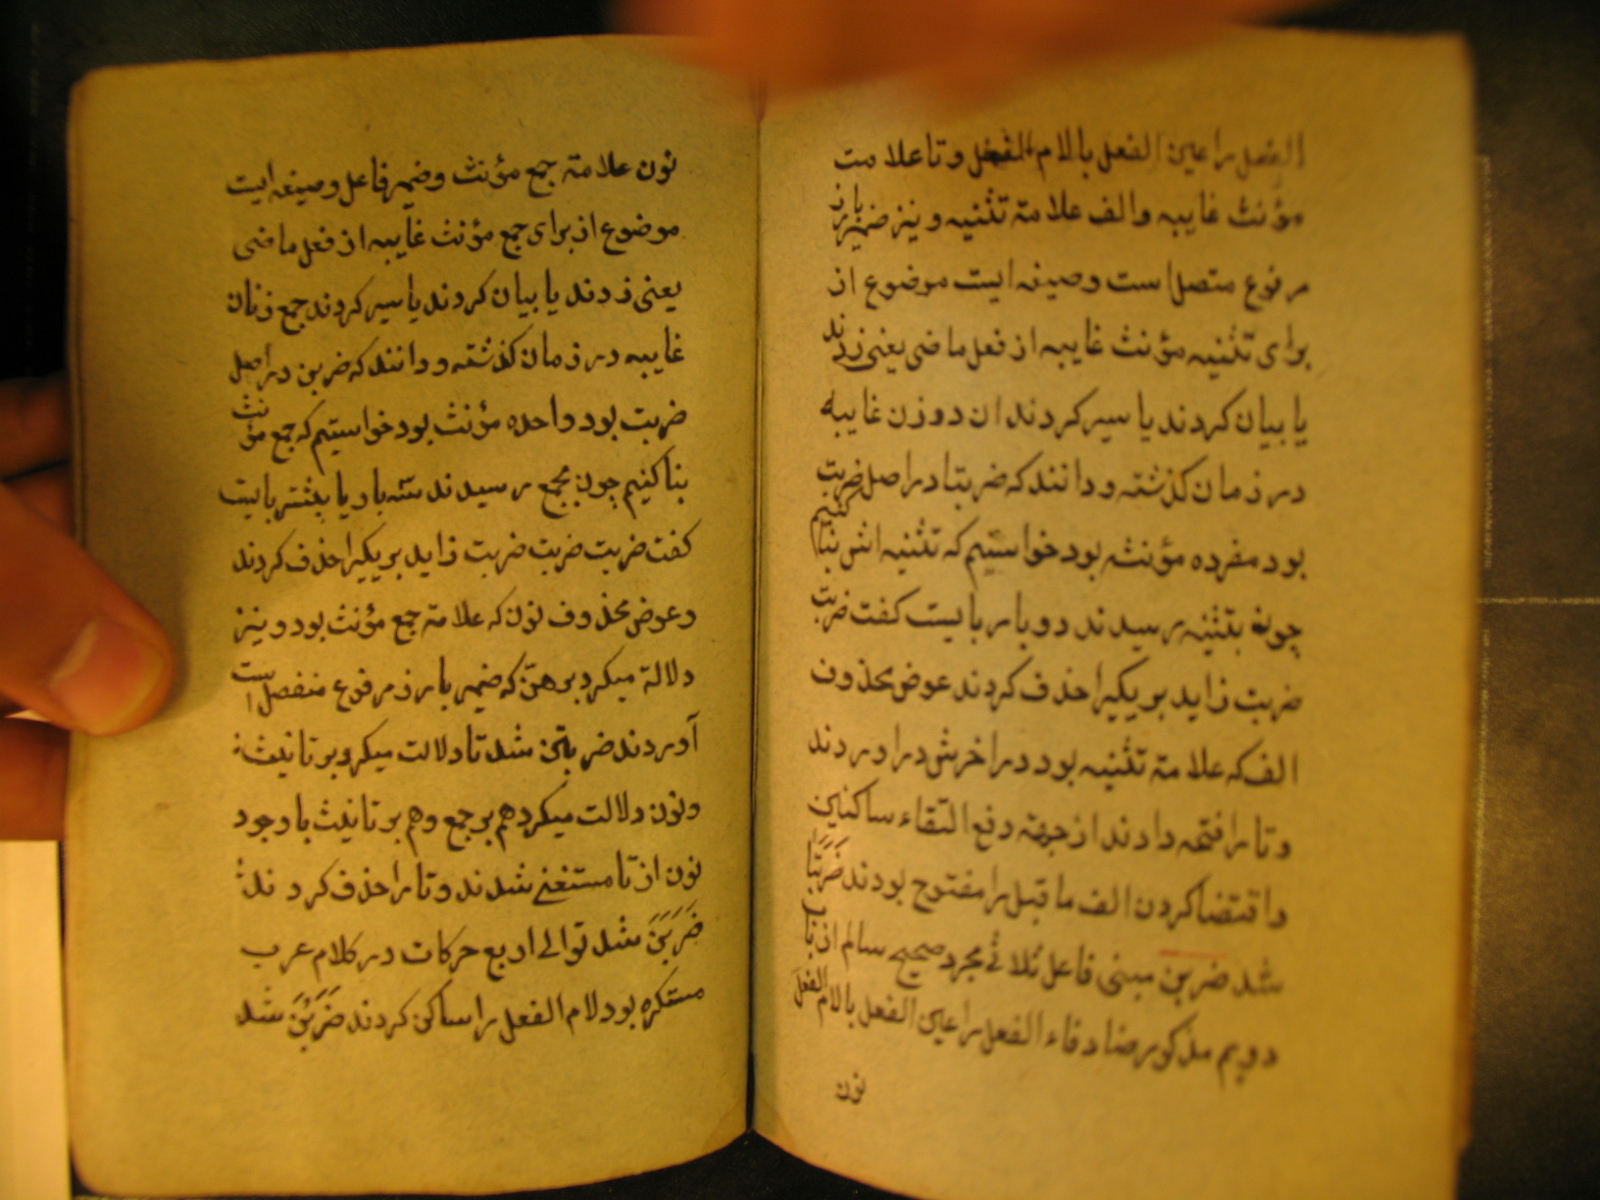 الفعل را عین الفعل با لام الفعل و تا علامت
مؤنث غایبه والف علامة تثنیه و نیز ضمیر بارز
مرفوع متصل است وصیغه ایست موضوع از
برای تثنیه مؤنث غایبه از فعل ماضی یعنی زدند
یا بیان کردند یا سیر کردند ان دو زن غایبه
در زمان کذشته و دانند که ضربتا در اصل ضربت
بود مفرده مؤنثه بود خواستیم که تثنیه اش بنا کنیم
چونه بتثنیه رسیدند دو بار بایست کفت ضربت
ضربت زاید بر یکیرا حذف کردند عوض محذوف
الف که علامة تثنیه بود در اخرش در اوردند
و تا را فتحه دادند از جهة دفع التقاء ساکنین
و اقتضا کردن الف ما قبل را مفتوح بودند ضَرَبَتَا
شد ضربن مبنی فاعل ثلاثی مجرد صحیح سالم از باب
دویم مذکور ضاد فاء الفعل را عین الفعل با لام الفعل
نون
نون علامة جمع مؤنث وضمیر فاعل وصیغه ایست
موضوع از برای جمع مؤنث غایبه از فعل ماضی
یعنی زدند یا بیان کردند یا سیر کردند جمع زنان
غایبه در زمان کذشته و دانند که ضربن در اصل
ضربت بود واحده مؤنث بود خواستیم که جمع مؤنث
بنا کنیم چون بجمع رسیدند سه بار یا بیشتر بایست
کفت ضربت ضربت ضربت زاید بر یکیرا حذف کردند
وعوض محذوف نون که علامة جمع مؤنث بود و نیز
دلالة میکرد بر هنّ که ضمیر بارز مرفوع منفصل است
آوردند ضربتن شد تا دلالت میکرد بر تانیث
ونون دلالت میکرد هم بر جمع وهم بر تانیث با وجود
نون از تا مستغنی شدند و تا را حذف کردند
ضَرَبَنَ شد توالی اربع حرکات در کلام عرب
مستکره بود لام الفعل را ساکن کردند ضَرَبْنَ شد